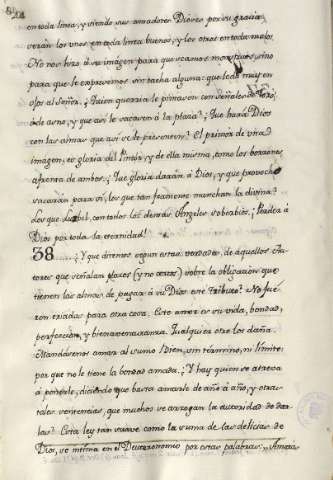 en toda linea, y siendo sus amadores Dioses por su gracia,
serán los unos en toda linea buenos, y los otros en todo malos.
No nos hizo à su imágen para que seamos monstruos, sino
para que le expresemos sin tacha alguna: que
ojos al Señor. ¿Quien querria le pintasen con señales de
ò de asno, y que asi le sacasen à la plaza? ¿Que hará Dios
con las almas que asi se le presenten? El primor de una
imágen, es gloria del Pintor, y de ella misma, como los borrones
afrenta de ambos. ¿Que gloria darán à Dios, y que provecho
sacarán para sí, los que tan feamente manchan la divina?
Los que con todos los demás Angeles soberbios. ¡Perder à
Dios por toda la eternidad!
38. ¿Y que diremos segun estas verdades, de aquellos Au-
tores que señalan plazos (y no cortos) sobre la obligacion que
tienen las almas de pagar à su Dios este tributo? No fue-
ron criadas para otra cosa. Este amor es su vida, bondad,
perfeccion, y bienaventuranza. Qualquiera otro las daña.
Mandáronos amar al sumo Bien, sin término, ni límite:
por que no le tiene la bondad amada. ¿Y hay quien se atreva
à ponerle, diciendo que basta amarle de año à año, y otras
tales sentencias, que muchos se arrogan la autoridad de dar-
las? Esta ley tan suave como la suma de las delicias de
Dios, se intima en el Deuteronomio por estas palabras: „Amarás